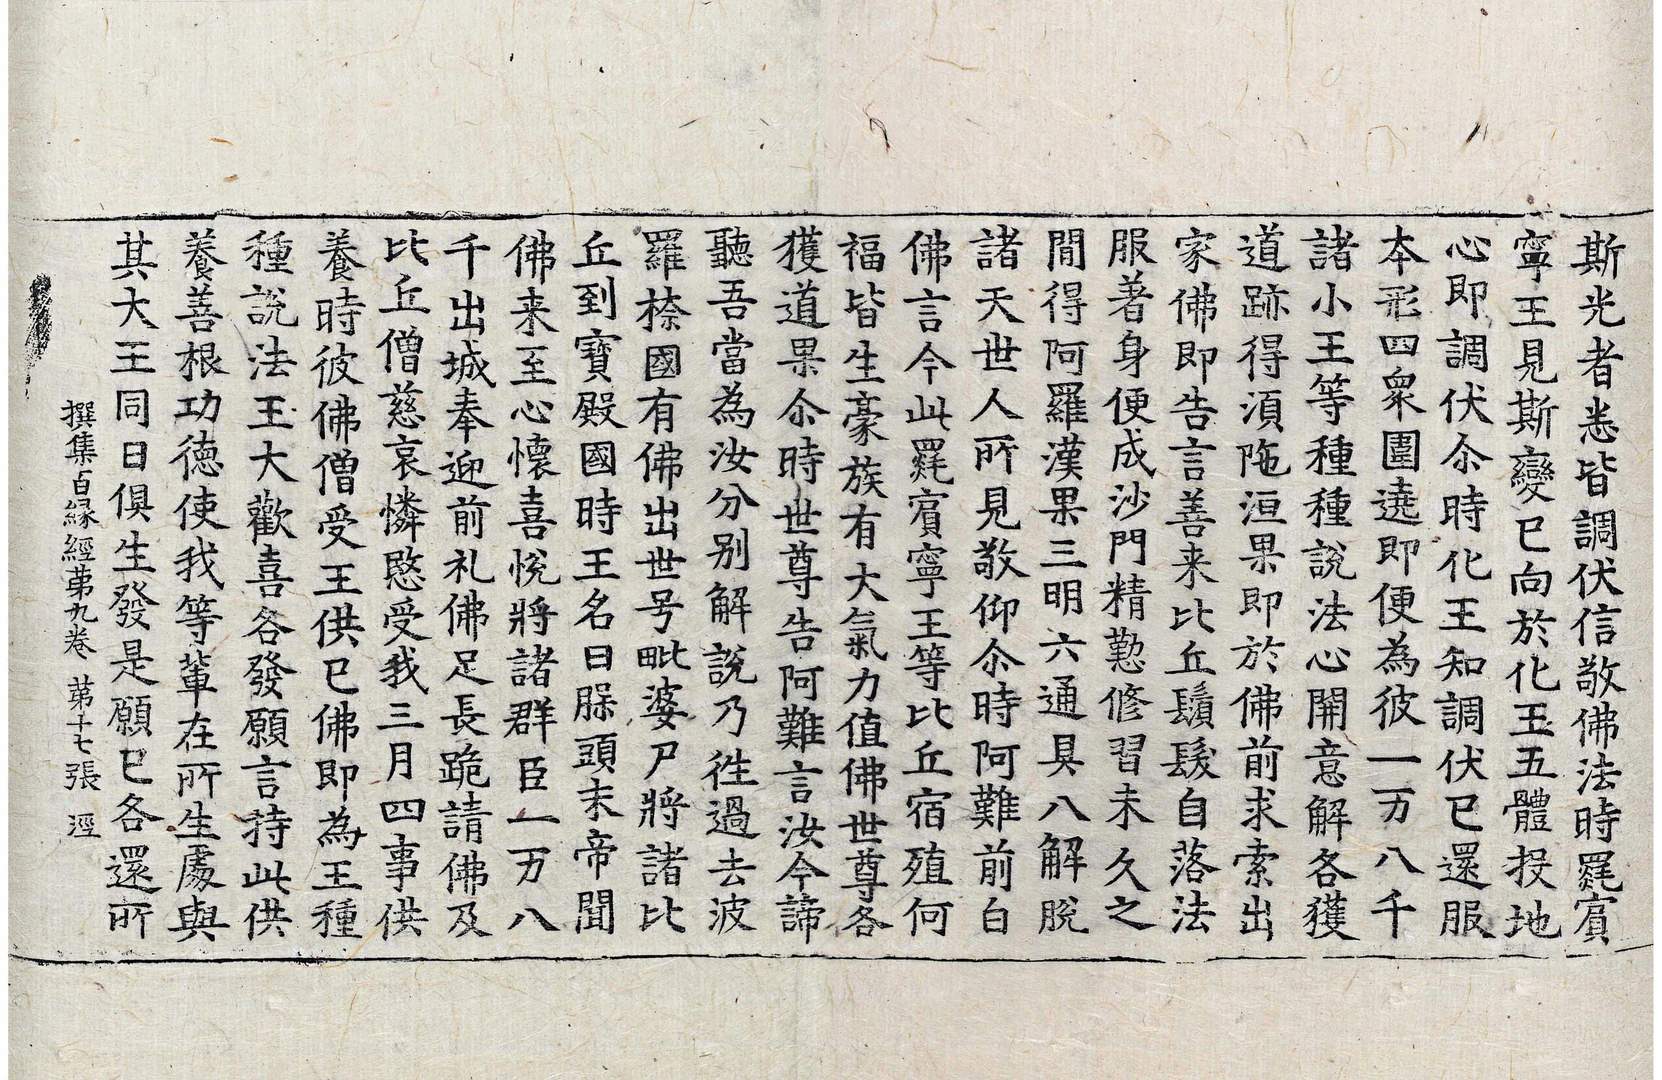 斯光者悉皆調伏信敬佛法時罽賓
寧王見斯變已向於化王五體投地
心即調伏尒時化王知調伏已還服
本形四衆圍遶即便為彼一万八千
諸小王等種種說法心開意解各獲
道跡得湏陁洹果即於佛前求索出
家佛即告言善来比丘鬚髮自落法
服著身便成沙門精懃修習未久之
間得阿羅漢果三明六通具八解脫
諸天世人所見敬仰尒時阿難前白
佛言今此罽賓寧王等比丘宿殖何
福皆生豪族有大氣力值佛世尊各
獲道果尒時世尊告阿難言汝今諦
聽吾當為汝分別解說乃徃過去波
羅㮈國有佛出世号毗婆尸將諸比
丘到寶殿國時王名曰䐧頭末帝聞
佛来至心懷喜悅將諸群臣一万八
千出城奉迎前礼佛足長跪請佛及
比丘僧慈哀憐愍受我三月四事供
養時彼佛僧受王供已佛即為王種
種說法王大歡喜各發願言持此供
養善根功德使我等輩在所生處與
其大王同日俱生發是願已各還所
撰集百緣經第九卷 第十七張 涇